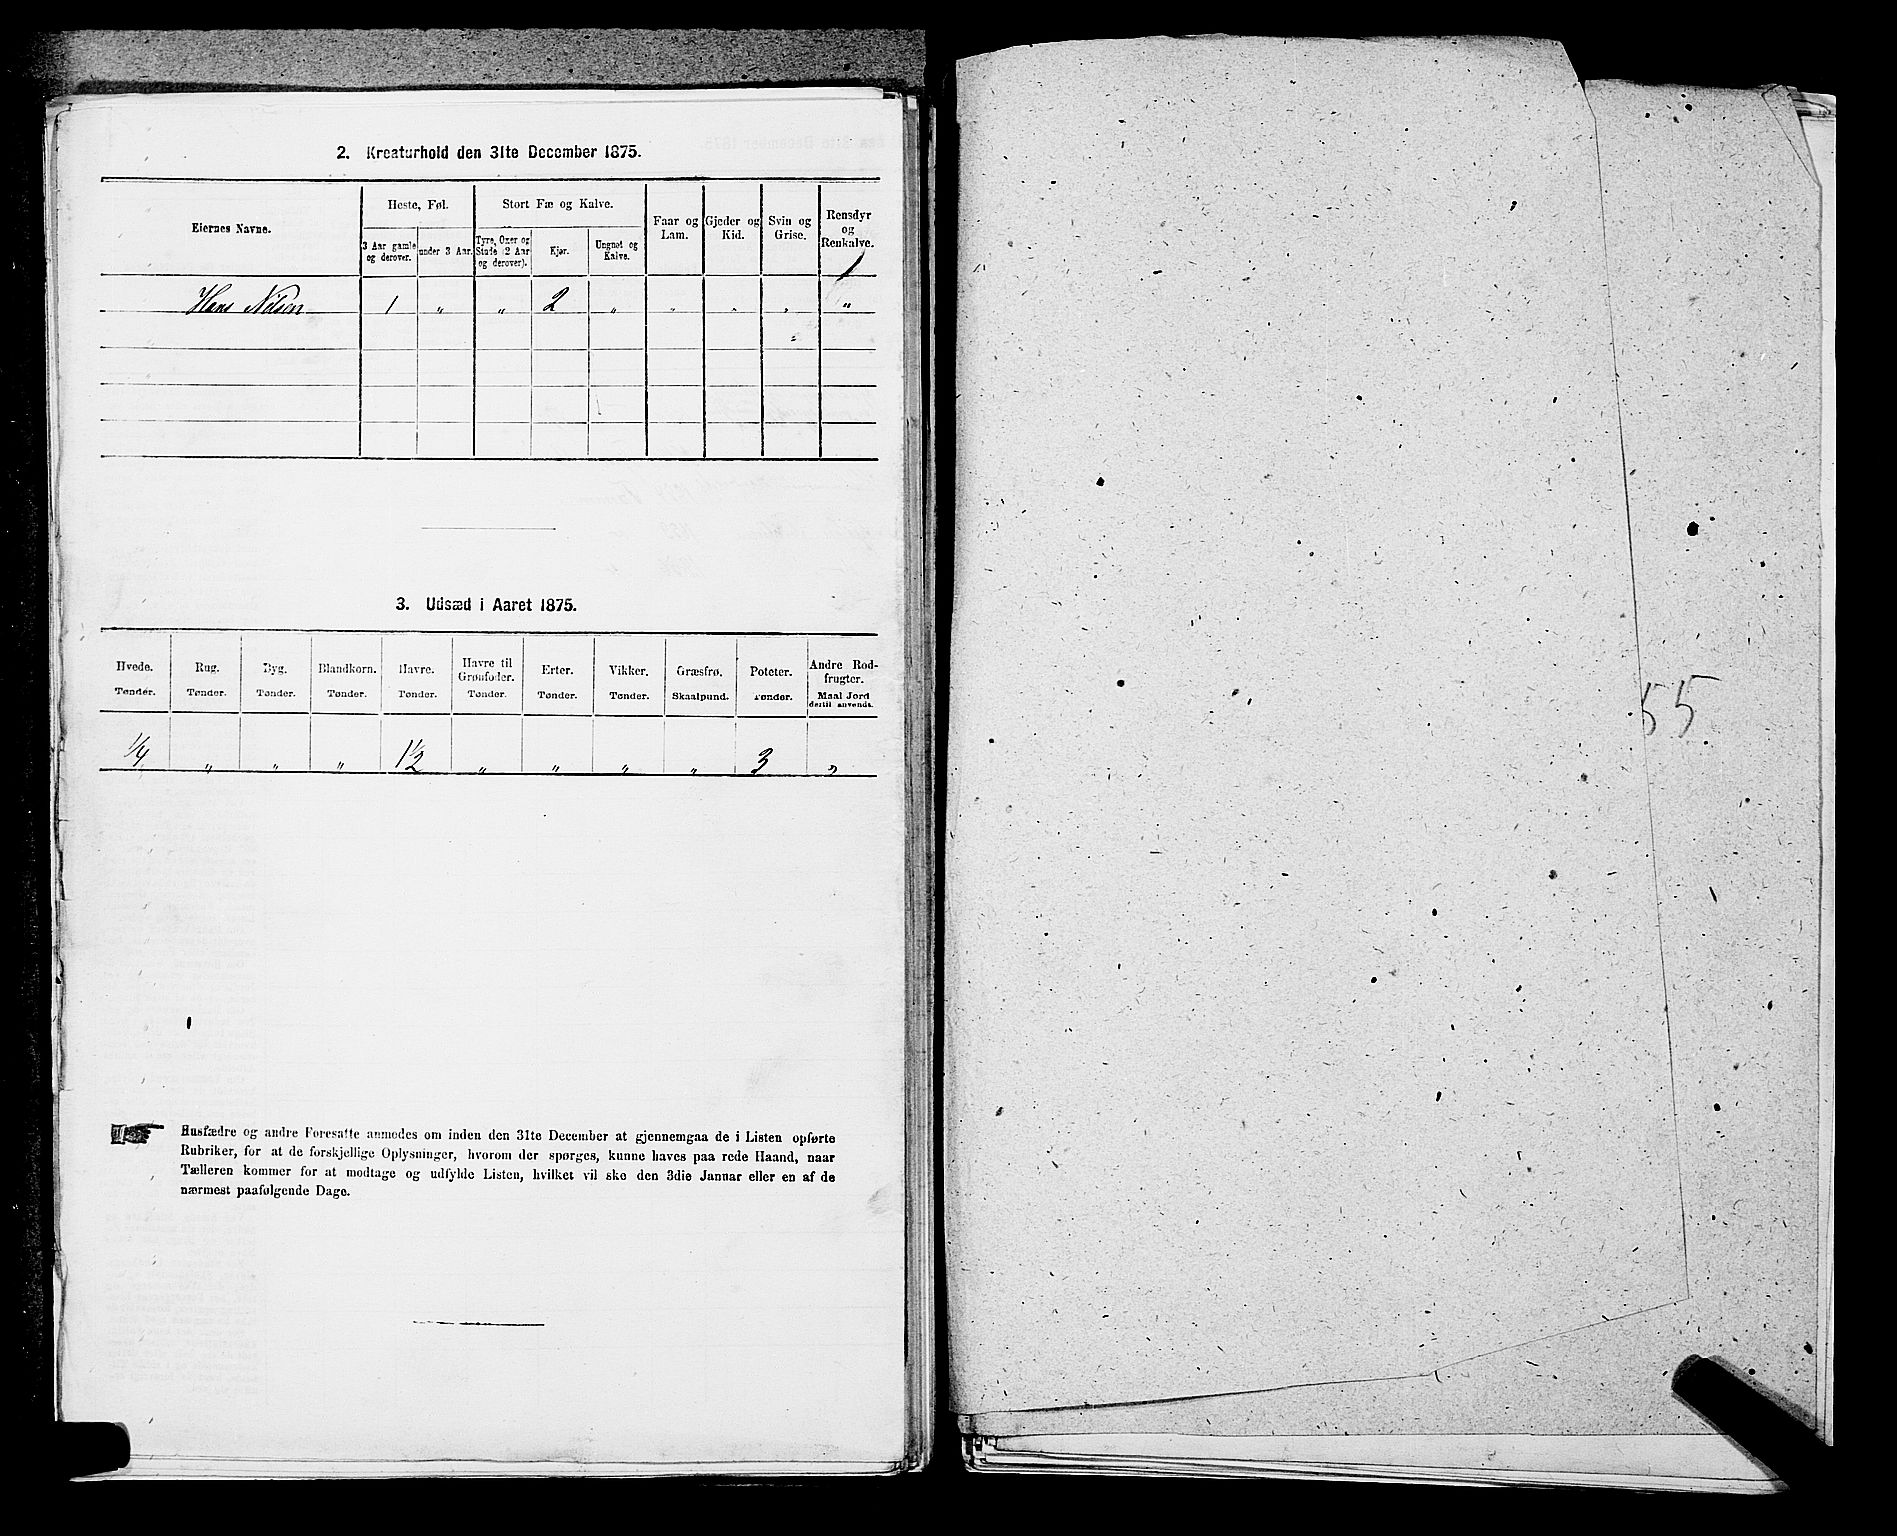 2. Kreaturhold den 31te December 1875.
Eiernes Navne.
Heste, Føl.
3 Aar gamle og derover.
under 3 Aar.
Stort Fæ og Kalve.
Tyre, Oxer og Stude (2 Aar og derover).
Kjør.
Ungnøt og Kalve.
Faar og Lam.
Gjeder og Kid.
Svin og Grise.
Rensdyr og Renkalve.
Hans Nilsen 1 " " 2 " " " " "
3. Udsæd i Aaret 1875.
Hvede. Rug. Byg. Blandkorn. Havre. Havre til Grønfoder. Erter. Vikker. Græsfrø. Poteter. Andre Rodfrugter.
Tønder. Tønder. Tønder. Tønder. Tønder. Tønder. Tønder. Tønder. Skaalpund. Tønder. Maal Jord dertil anvendt.
1/4 " " " 1½ " " " " 3 "
Husfædre og andre Foresatte anmodes om inden den 31te December at gjennemgaa de i Listen opførte
Rubriker, for at de forskjellige Oplysninger, hvorom der spørges, kunne haves paa rede Haand, naar
Tælleren kommer for at modtage og udfylde Listen, hvilket vil ske den 3die Januar eller en af de
nærmest paafølgende Dage.
55